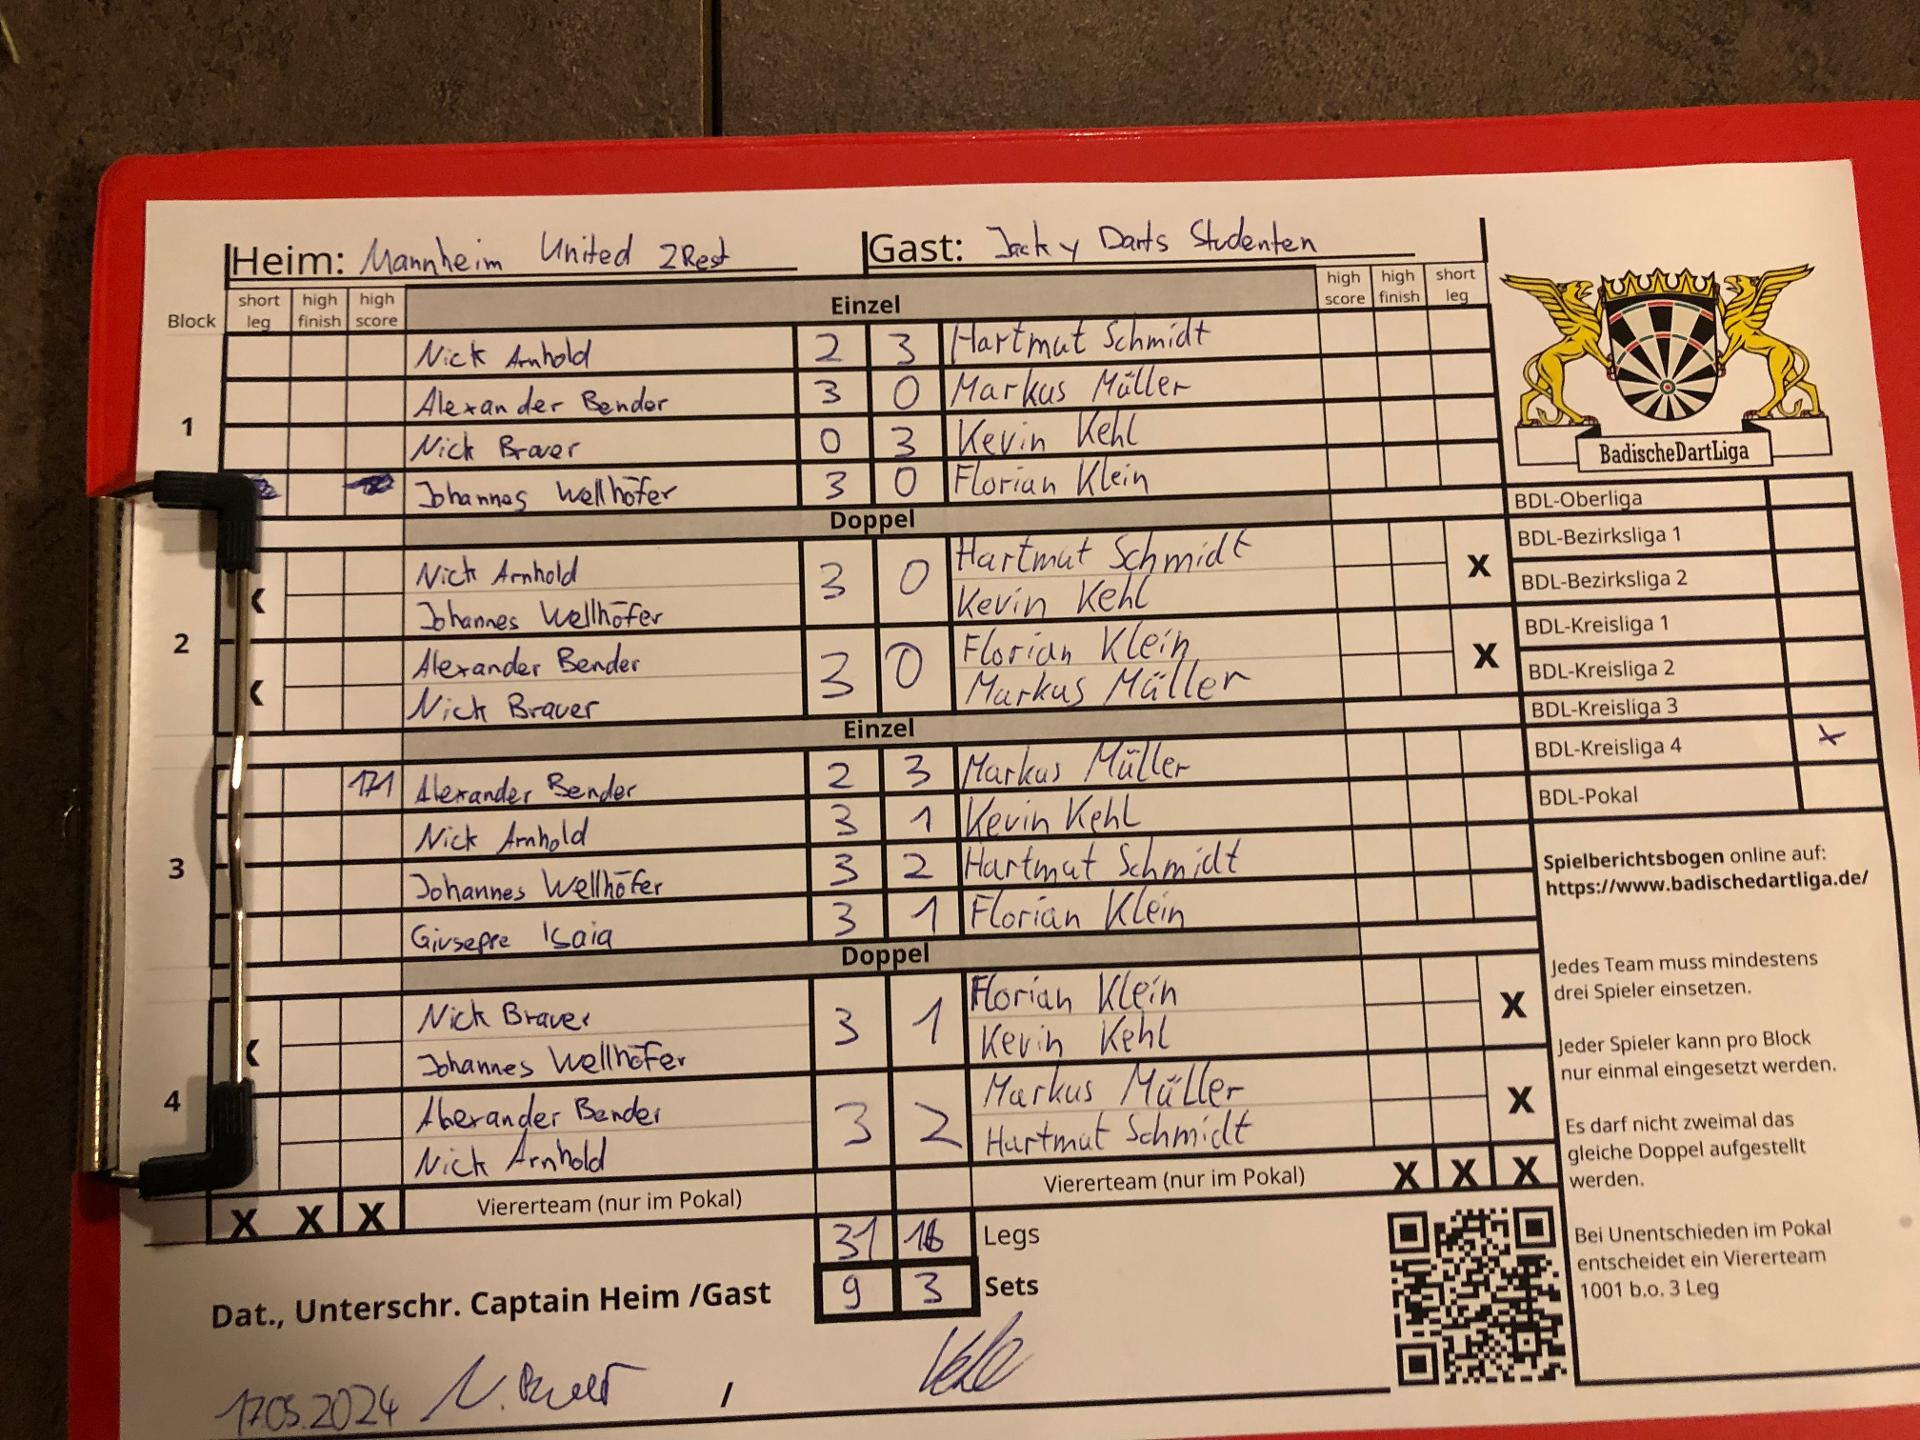 Heim: Mannheim United 2Rest Gast: Jacky Darts Studenten
Block short leg high finish high score Einzel high score high finish short leg
1
Nick Arnhold 2 3 Hartmut Schmidt
Alexander Bender 3 0 Markus Müller
Nick Brauer 0 3 Kevin Kehl
Johannes Wellhöfer 3 0 Florian Klein
Doppel
2
Nick Arnhold 3 0 Hartmut Schmidt X
Johannes Wellhöfer Kevin Kehl
Alexander Bender 3 0 Florian Klein X
Nick Brauer Markus Müller
Einzel
3
171 Alexander Bender 2 3 Markus Müller
Nick Arnhold 3 1 Kevin Kehl
Johannes Wellhöfer 3 2 Hartmut Schmidt
Giuseppe Isaia 3 1 Florian Klein
Doppel
4
Nick Brauer 3 1 Florian Klein X
Johannes Wellhöfer Kevin Kehl
Alexander Bender 3 2 Markus Müller X
Nick Arnhold Hartmut Schmidt
X X X Viererteam (nur im Pokal) Viererteam (nur im Pokal) X X X
31 16 Legs
9 3 Sets
Dat., Unterschr. Captain Heim /Gast
17.05.2024 /
BadischeDartLiga
BDL-Oberliga
BDL-Bezirksliga 1
BDL-Bezirksliga 2
BDL-Kreisliga 1
BDL-Kreisliga 2
BDL-Kreisliga 3
BDL-Kreisliga 4 x
BDL-Pokal
Spielberichtsbogen online auf:
https://www.badischedartliga.de/
Jedes Team muss mindestens
drei Spieler einsetzen.
Jeder Spieler kann pro Block
nur einmal eingesetzt werden.
Es darf nicht zweimal das
gleiche Doppel aufgestellt
werden.
Bei Unentschieden im Pokal
entscheidet ein Viererteam
1001 b.o. 3 Leg